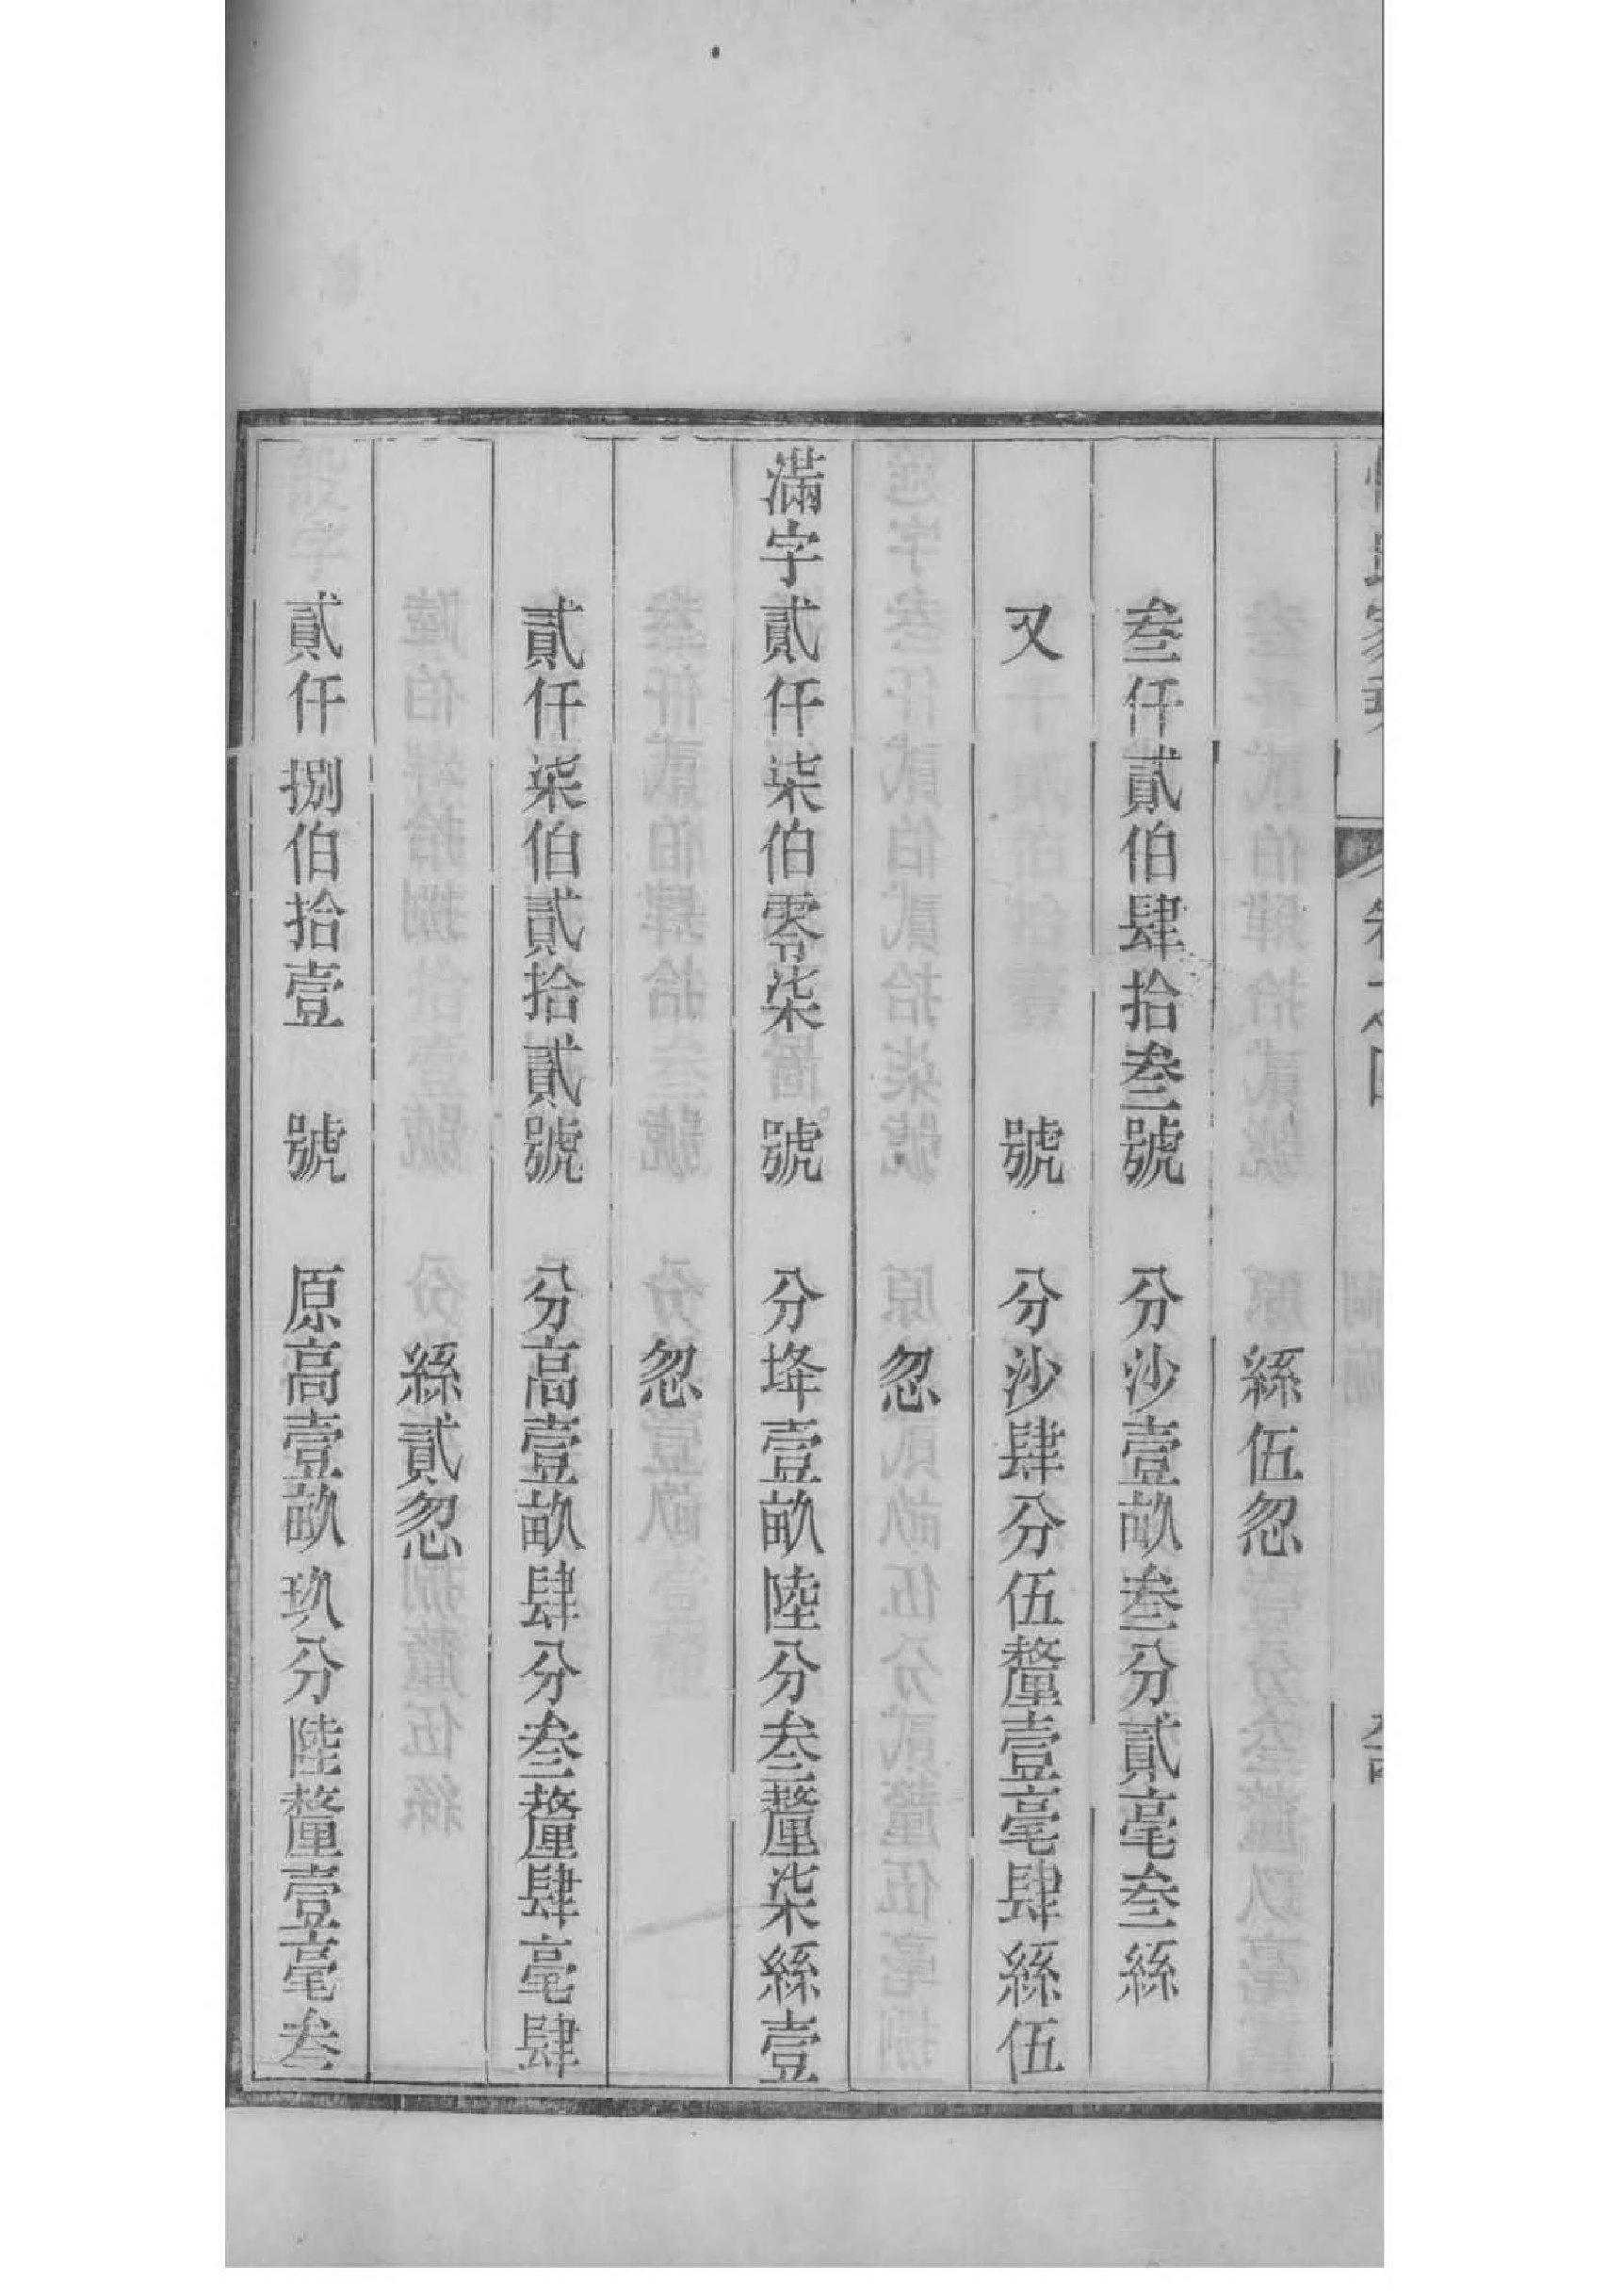 絲伍忽
叁仟貳伯肆拾叁號 分沙壹畝叁分貳毫叁絲
又 號 分沙肆分伍釐壹毫肆絲伍
忽
滿字貳仟柒伯零柒 號 分埄壹畝陸分叁釐柒絲壹
忽
貳仟柒伯貳拾貳號 分高壹畝肆分叁釐肆毫肆
絲貳忽
貳仟捌伯拾壹 號 原高壹畝玖分陸釐壹毫叁